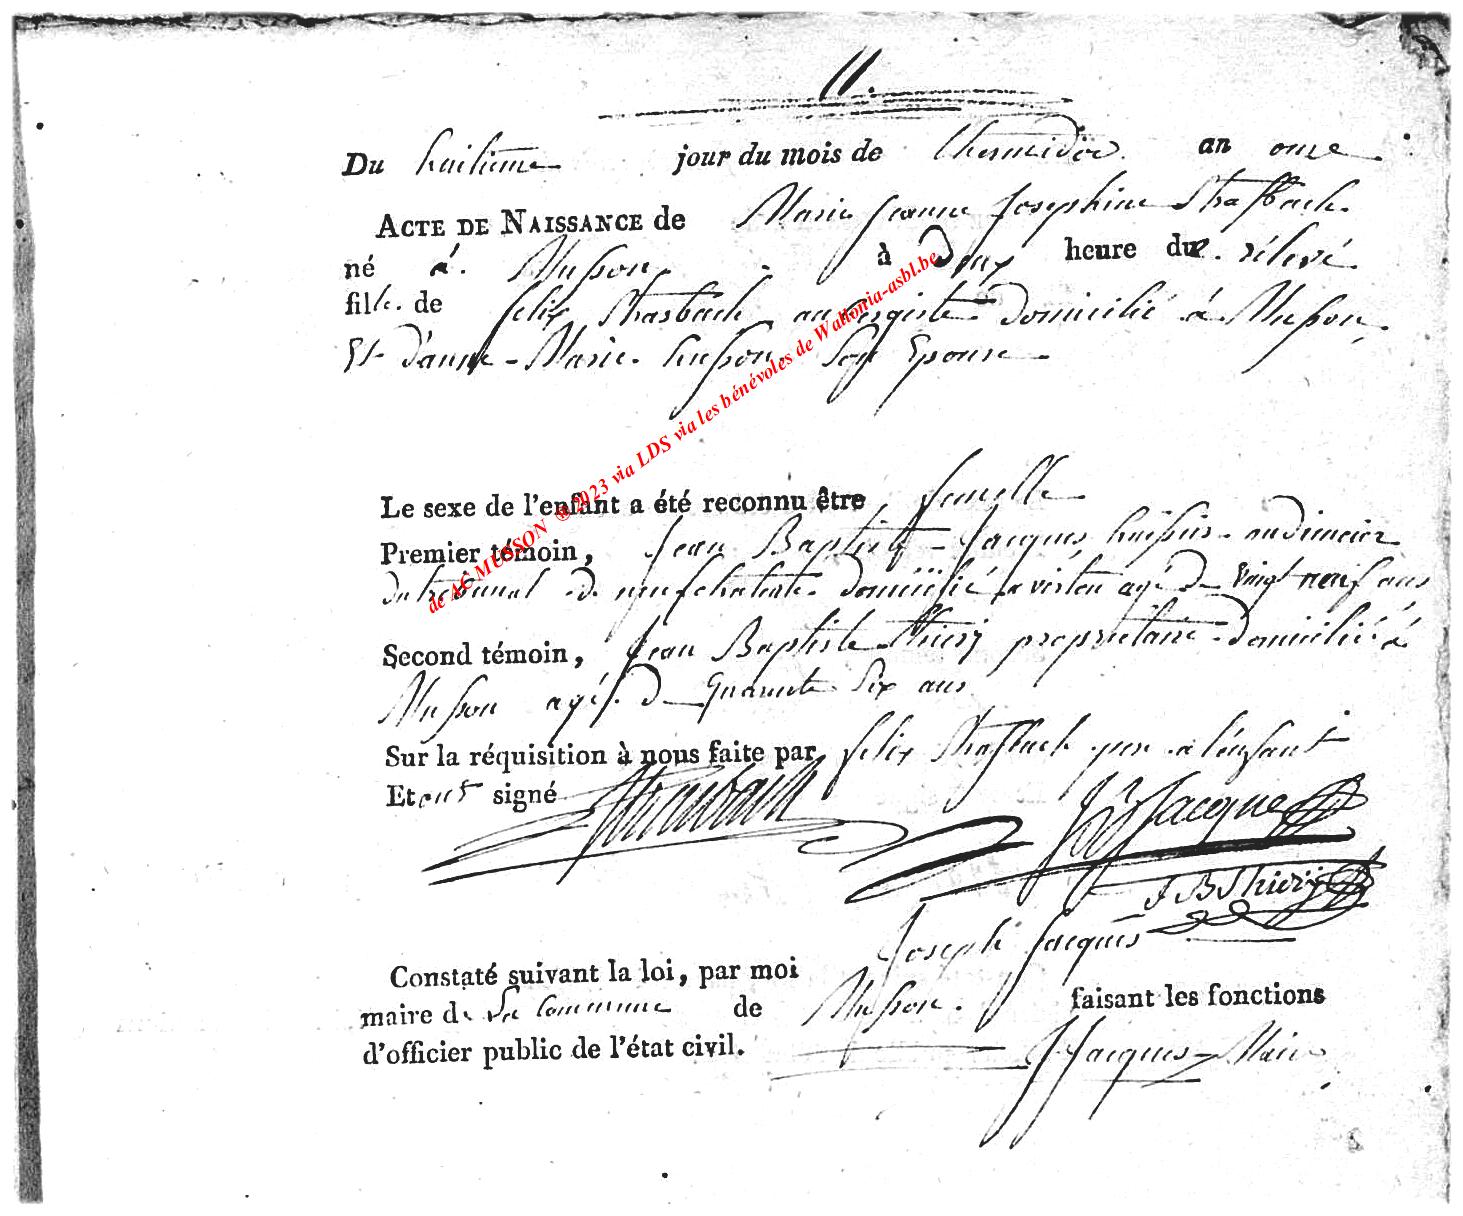 11.
Du huitieme jour du mois de thermidor an onze
ACTE DE NAISSANCE de Marie Jeanne Josephine Strasbach
né á Musson à Deux heure du relevé
fille de felix Strasbach domicilié à Musson
Et d'anne Marie husson Son Epouse
Le sexe de l'enfant a été reconnu être femelle
Premier témoin, Jean Baptiste Jacques huissier audiencier
du tribunal de neufchateau domicilié a virton agé de vingt neuf ans
Second témoin, Jean Baptiste thiery proprietaire domicilié à
Musson agé de quarante Six ans
Sur la réquisition à nous faite par felix Strasbach pere a l'enfant
Et ont signé
Jacques
J B thiery
Constaté suivant la loi, par moi Joseph Jacques
maire de La Commune de Musson. faisant les fonctions
d'officier public de l'état civil. J Jacques Maire
de AC MUSSON ® 2023 via LDS via les bénévoles de Wallonia-asbl.be